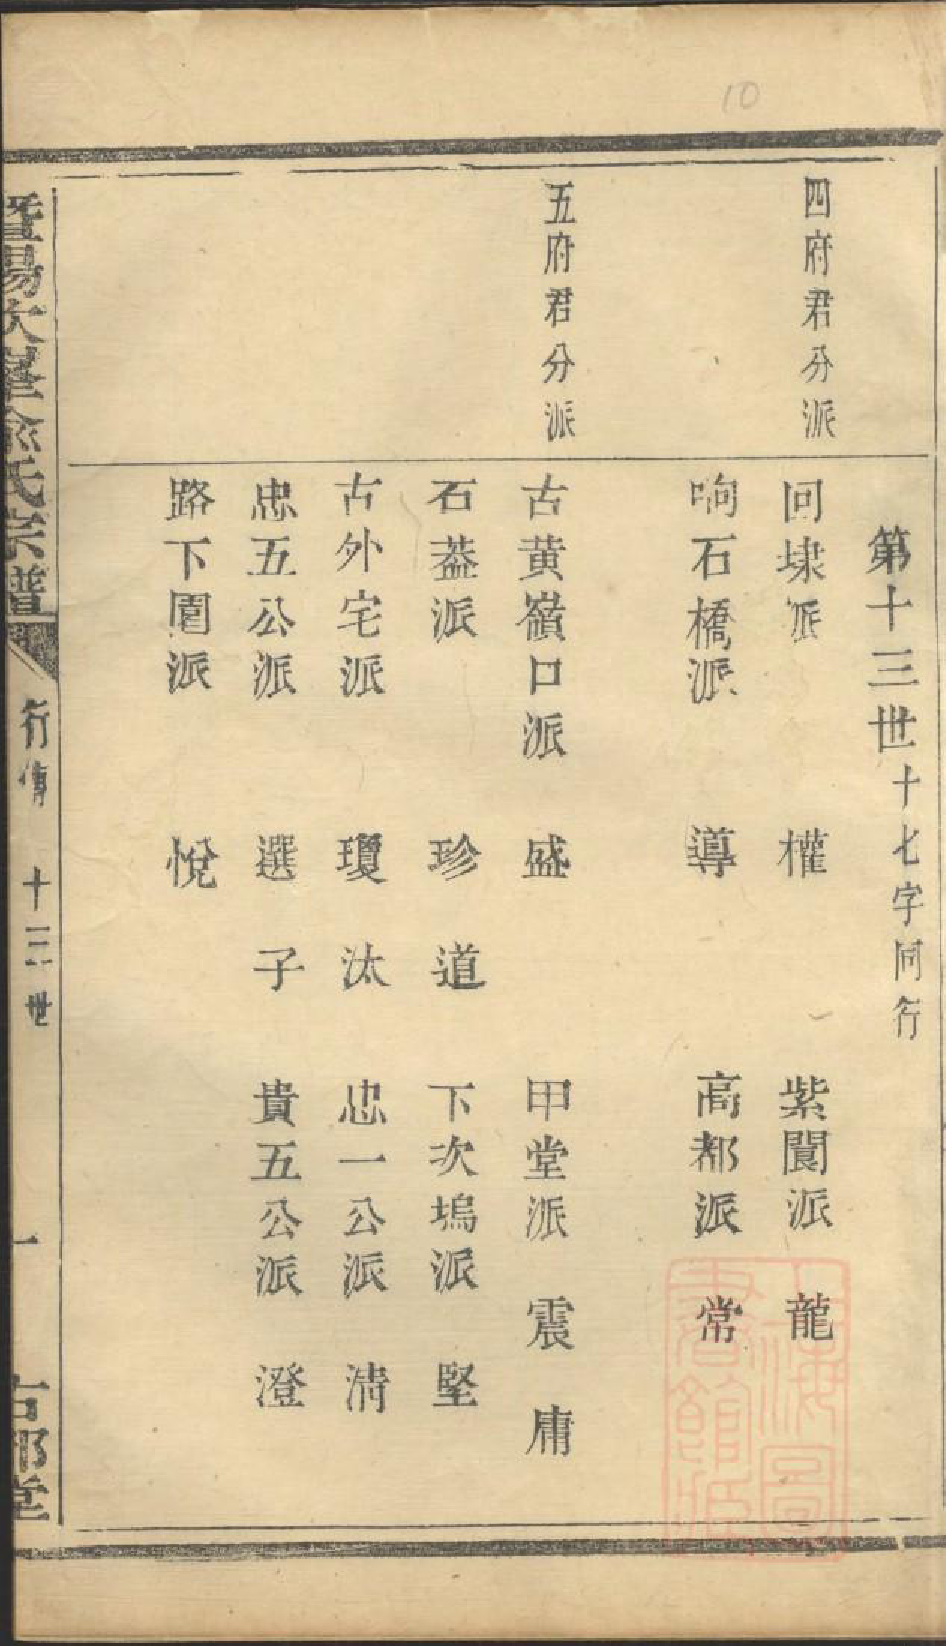 10
第十三世十七字同行
四府君分派
回埭派 權 紫閬派 龍
响石橋派 導 高都派 常
五府君分派
古黄嶺口派 盛 甲堂派 震 庸
石葢派 珍 道 下次塢派 堅
古外宅派 瓊 汰 忠一公派 清
忠五公派 選 子 貴五公派 澄
路下圊派 悅
暨陽次峯俞氏宗譜 行傳 十三世 一
上海圖書館藏